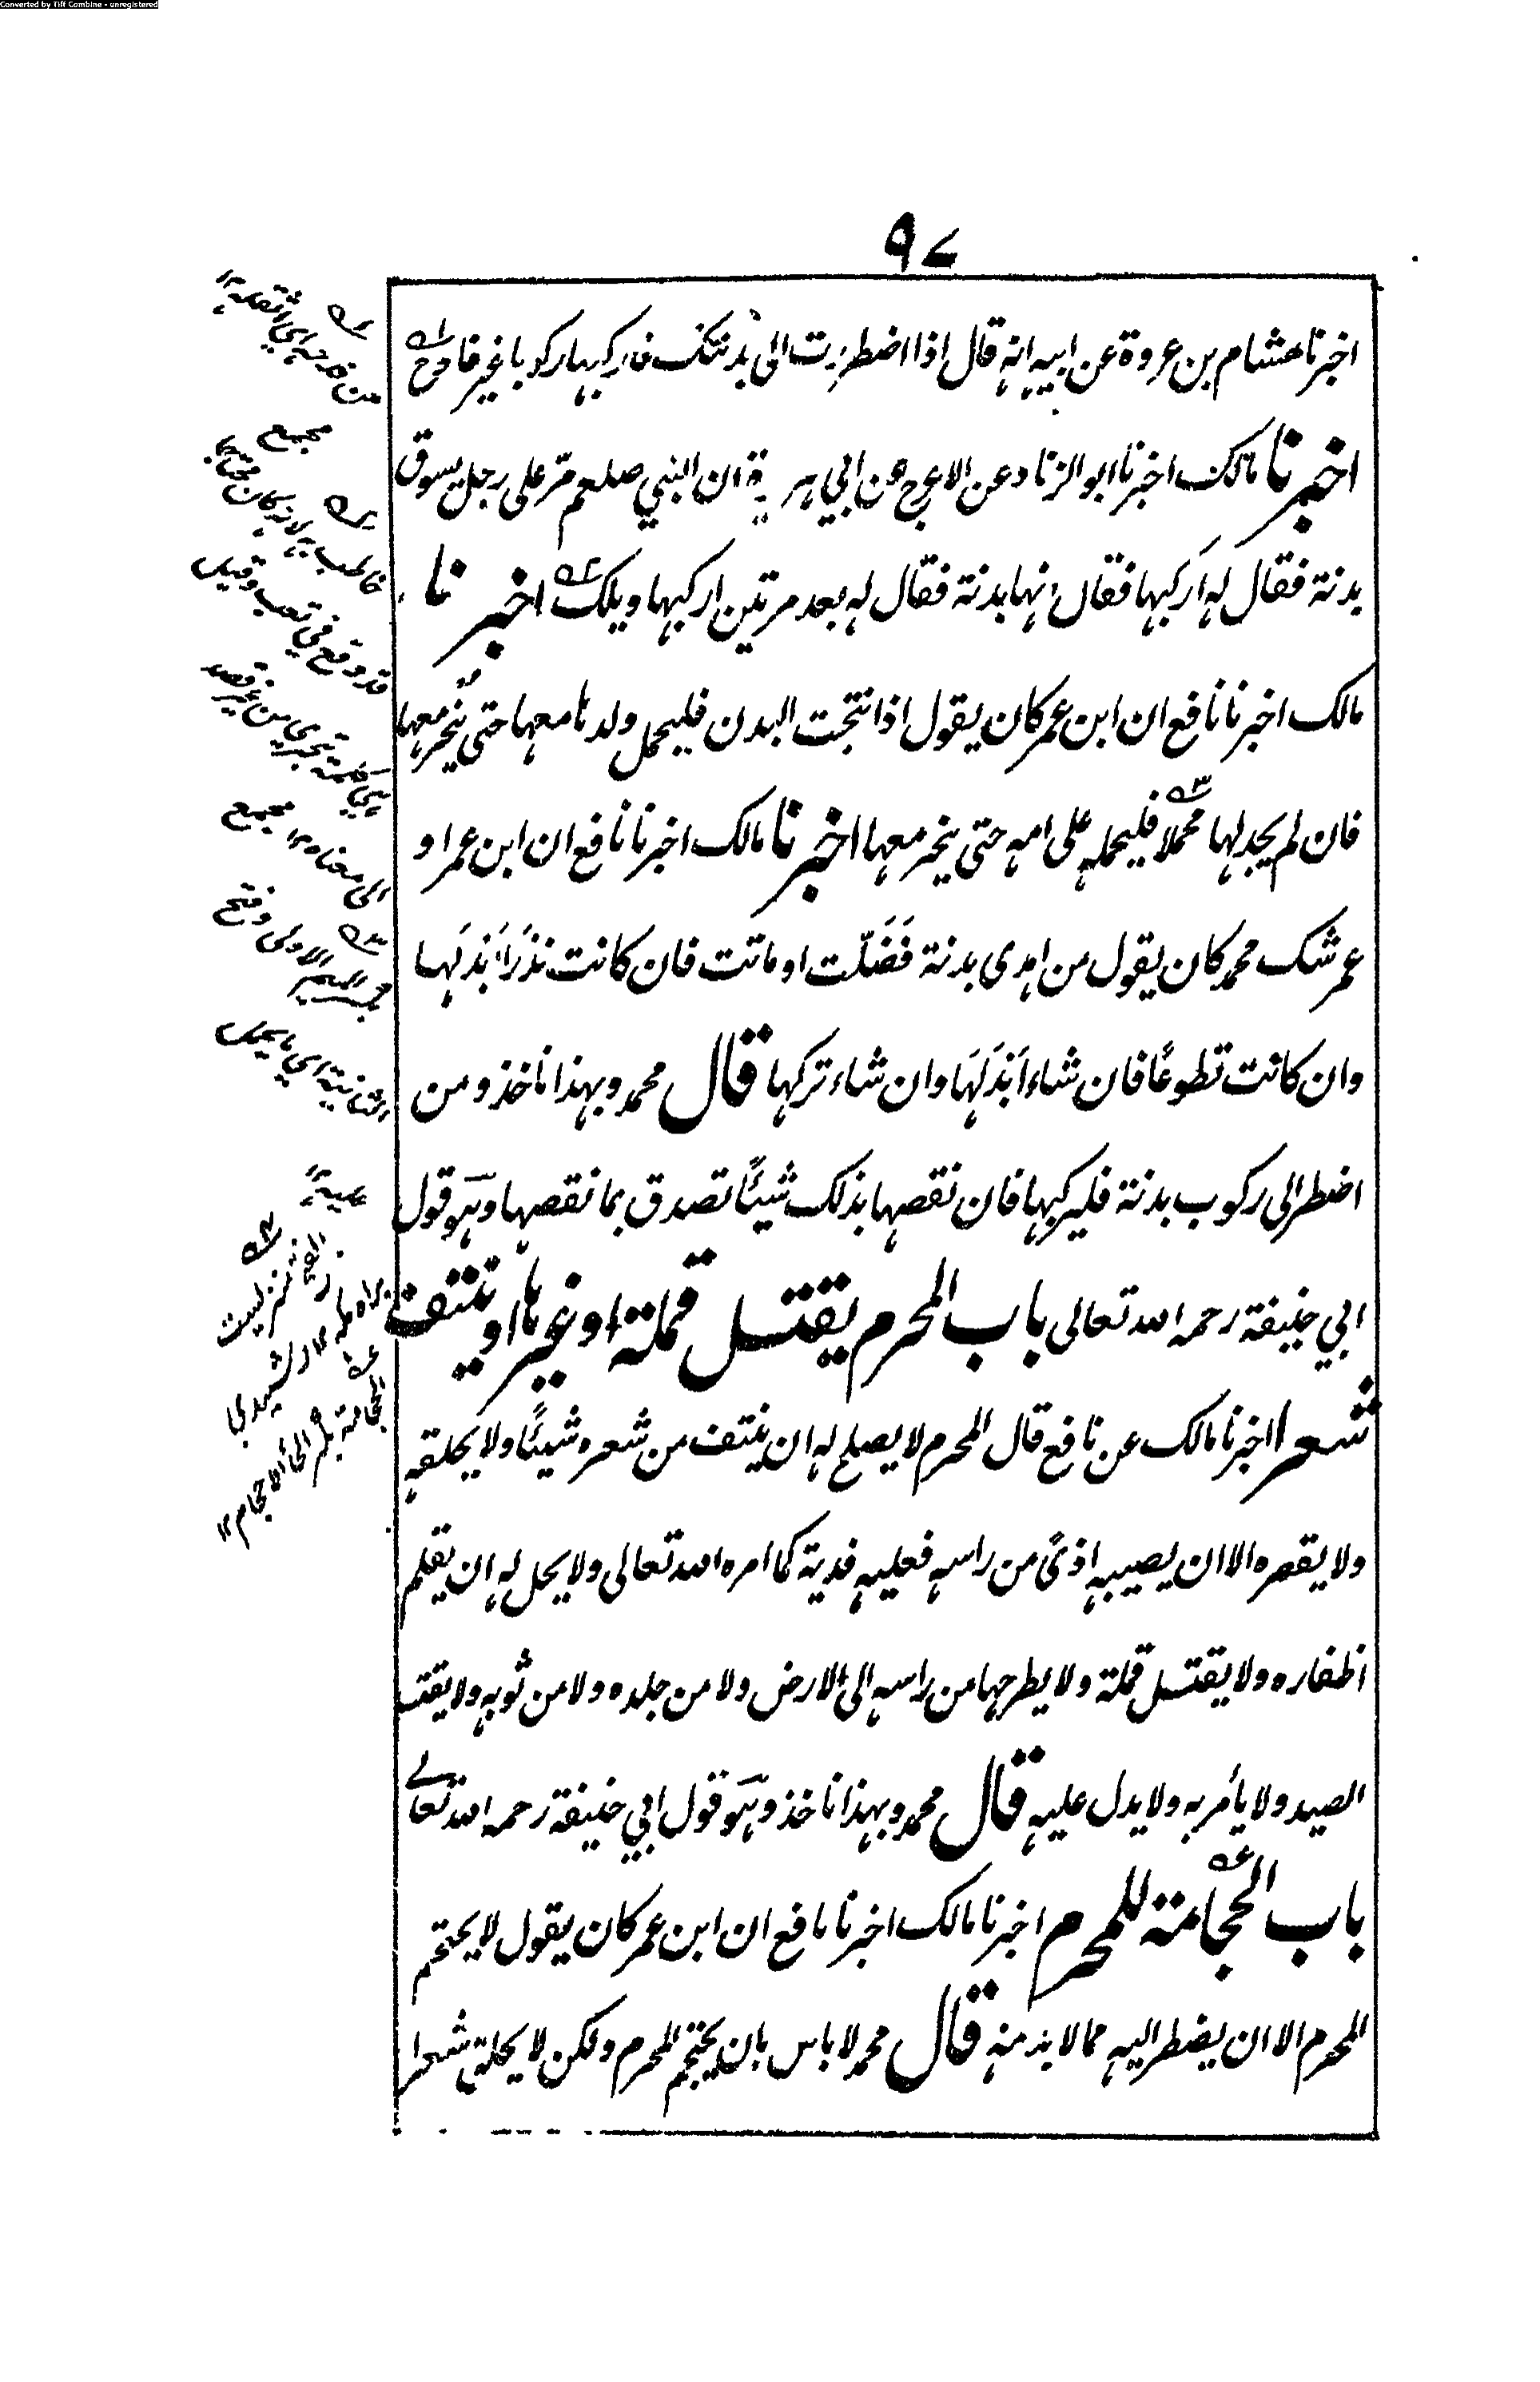 Converted by Tiff Combine - unregistered
٩٧
اخبرنا هشام بن عروة عن ابيه انه قال اذا اضطررت الى بدنتك فاركبها ركوبا غير فادح
اخبرنا مالك اخبرنا ابو الزناد عن الاعرج عن ابي هريرة ان النبي صلعم مرّ على رجل يسوق
بدنة فقال له اركبها فقال انها بدنة فقال له بعد مرتين اركبها ويلك اخبرنا
مالك اخبرنا نافع ان ابن عمر كان يقول اذا نتجت البدن فليحمل ولدها معها حتى ينحر معها
فان لم يجد لها محملا فليحمله على امه حتى ينحر معها اخبرنا مالك اخبرنا نافع ان ابن عمر او
عمر شك محمد كان يقول من اهدى بدنة فَضَلّت او ماتت فان كانت نذرًا ابدلَها
وان كانت تطوعًا فان شاء ابدَلَهَا وان شاء تركها قال محمد وبهذا ناخذ ومن
اضطر الى ركوب بدنة فليركبها فان نقصها بذلك شيئًا تصدق بما نقصها وهو قول
ابي حنيفة رحمه الله تعالى باب المحرم يقتل قملة او غيرها او ينتف
شعرا اخبرنا مالك عن نافع قال المحرم لا يصلح له ان ينتف من شعره شيئًا ولا يحلقه
ولا يقصره الا ان يصيبه اذىً من راسه فعليه فدية كما امره الله تعالى ولا يحل له ان يقلم
اظفاره ولا يقتل قملة ولا يطرحها من راسه الى الارض ولا من جلده ولا من ثوبه ولا يقتل
الصيد ولا يأمر به ولا يدل عليه قال محمد وبهذا ناخذ وهو قول ابي حنيفة رحمه الله تعالے
باب الحجامة للمحرم اخبرنا مالك اخبرنا نافع ان ابن عمر كان يقول لا يحتجم
المحرم الا ان يضطر اليه مما لا بد منه قال محمد لا باس بان يحتجم المحرم ولكن لا يحلق شعرا
١ے
من فدحه اي اثقله ١٢
مجمع
٢ے
خاطب به لانه كان محتاجا
قد وقع في تعب وقيل
هي كلمة تجري من غير قصد
الى معناه ١٢ مجمع
٣ے
بكسر الميم الاولى وفتح
الثانية اي ما يحمل
عليه ١٢